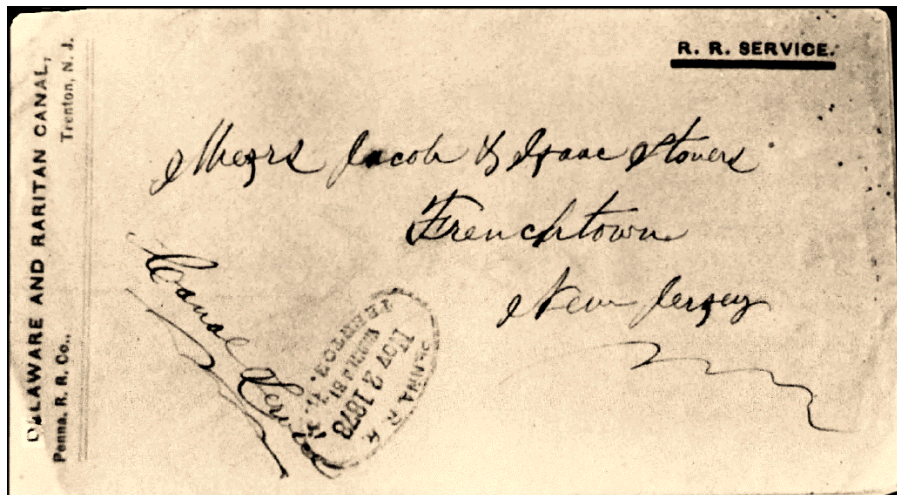 R. R. SERVICE.
DELAWARE AND RARITAN CANAL,
Penna. R. R. Co., Trenton, N. J.
Messrs Jacob & Isaac Stover
Frenchtown
New Jersey
Canal Service
PENNA R R
NOV 2 1878
TRENTON.